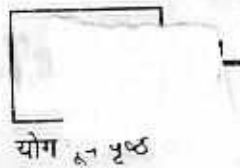 योग पृष्ठ